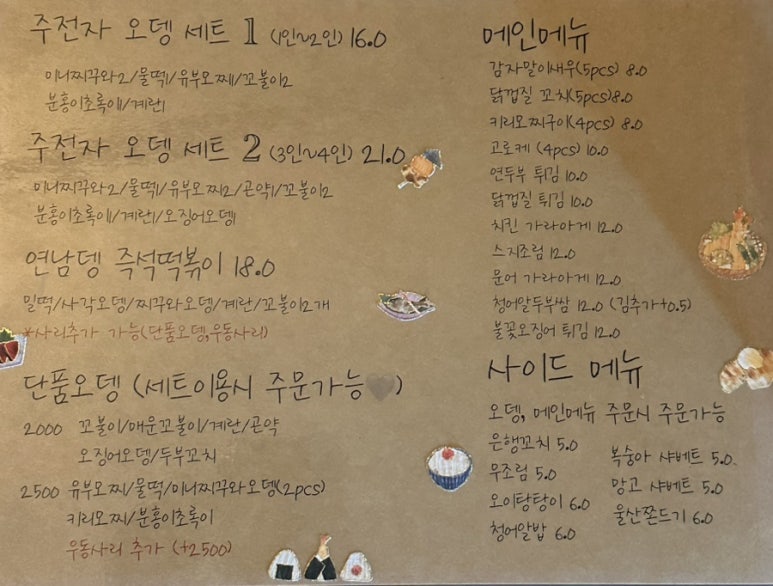 주전자 오뎅 세트 1 (1인~2인) 16.0
미니찌꾸와2/물떡1/유부모찌1/꼬불이2
분홍이초록이1/계란1
주전자 오뎅 세트 2 (3인~4인) 21.0
미니찌꾸와2/물떡1/유부모찌2/곤약1/꼬불이2
분홍이초록이1/계란1/오징어오뎅1
연남뎅 즉석떡볶이 18.0
밀떡/사각오뎅/찌꾸와오뎅/계란/꼬불이2개
*사리추가 가능(단품오뎅,우동사리)
단품오뎅 (세트이용시 주문가능🖤)
2000 꼬불이/매운꼬불이/계란/곤약
오징어오뎅/두부꼬치
2500 유부모찌/물떡/미니찌꾸와오뎅(2pcs)
키리모찌/분홍이초록이
우동사리 추가 (+2500)
메인메뉴
감자말이새우(5pcs) 8.0
닭껍질 꼬치(5pcs)8.0
키리모찌구이(4pcs) 8.0
고로케 (4pcs) 10.0
연두부 튀김 10.0
닭껍질 튀김 10.0
치킨 가라아게 12.0
스지조림 12.0
문어 가라아게 12.0
청어알두부쌈 12.0 (김추가+0.5)
불꽃오징어 튀김 12.0
사이드 메뉴
오뎅, 메인메뉴 주문시 주문가능
은행꼬치 5.0
무조림 5.0
오이탕탕이 6.0
청어알밥 6.0
복숭아 샤베트 5.0
망고 샤베트 5.0
울산쫀드기 6.0